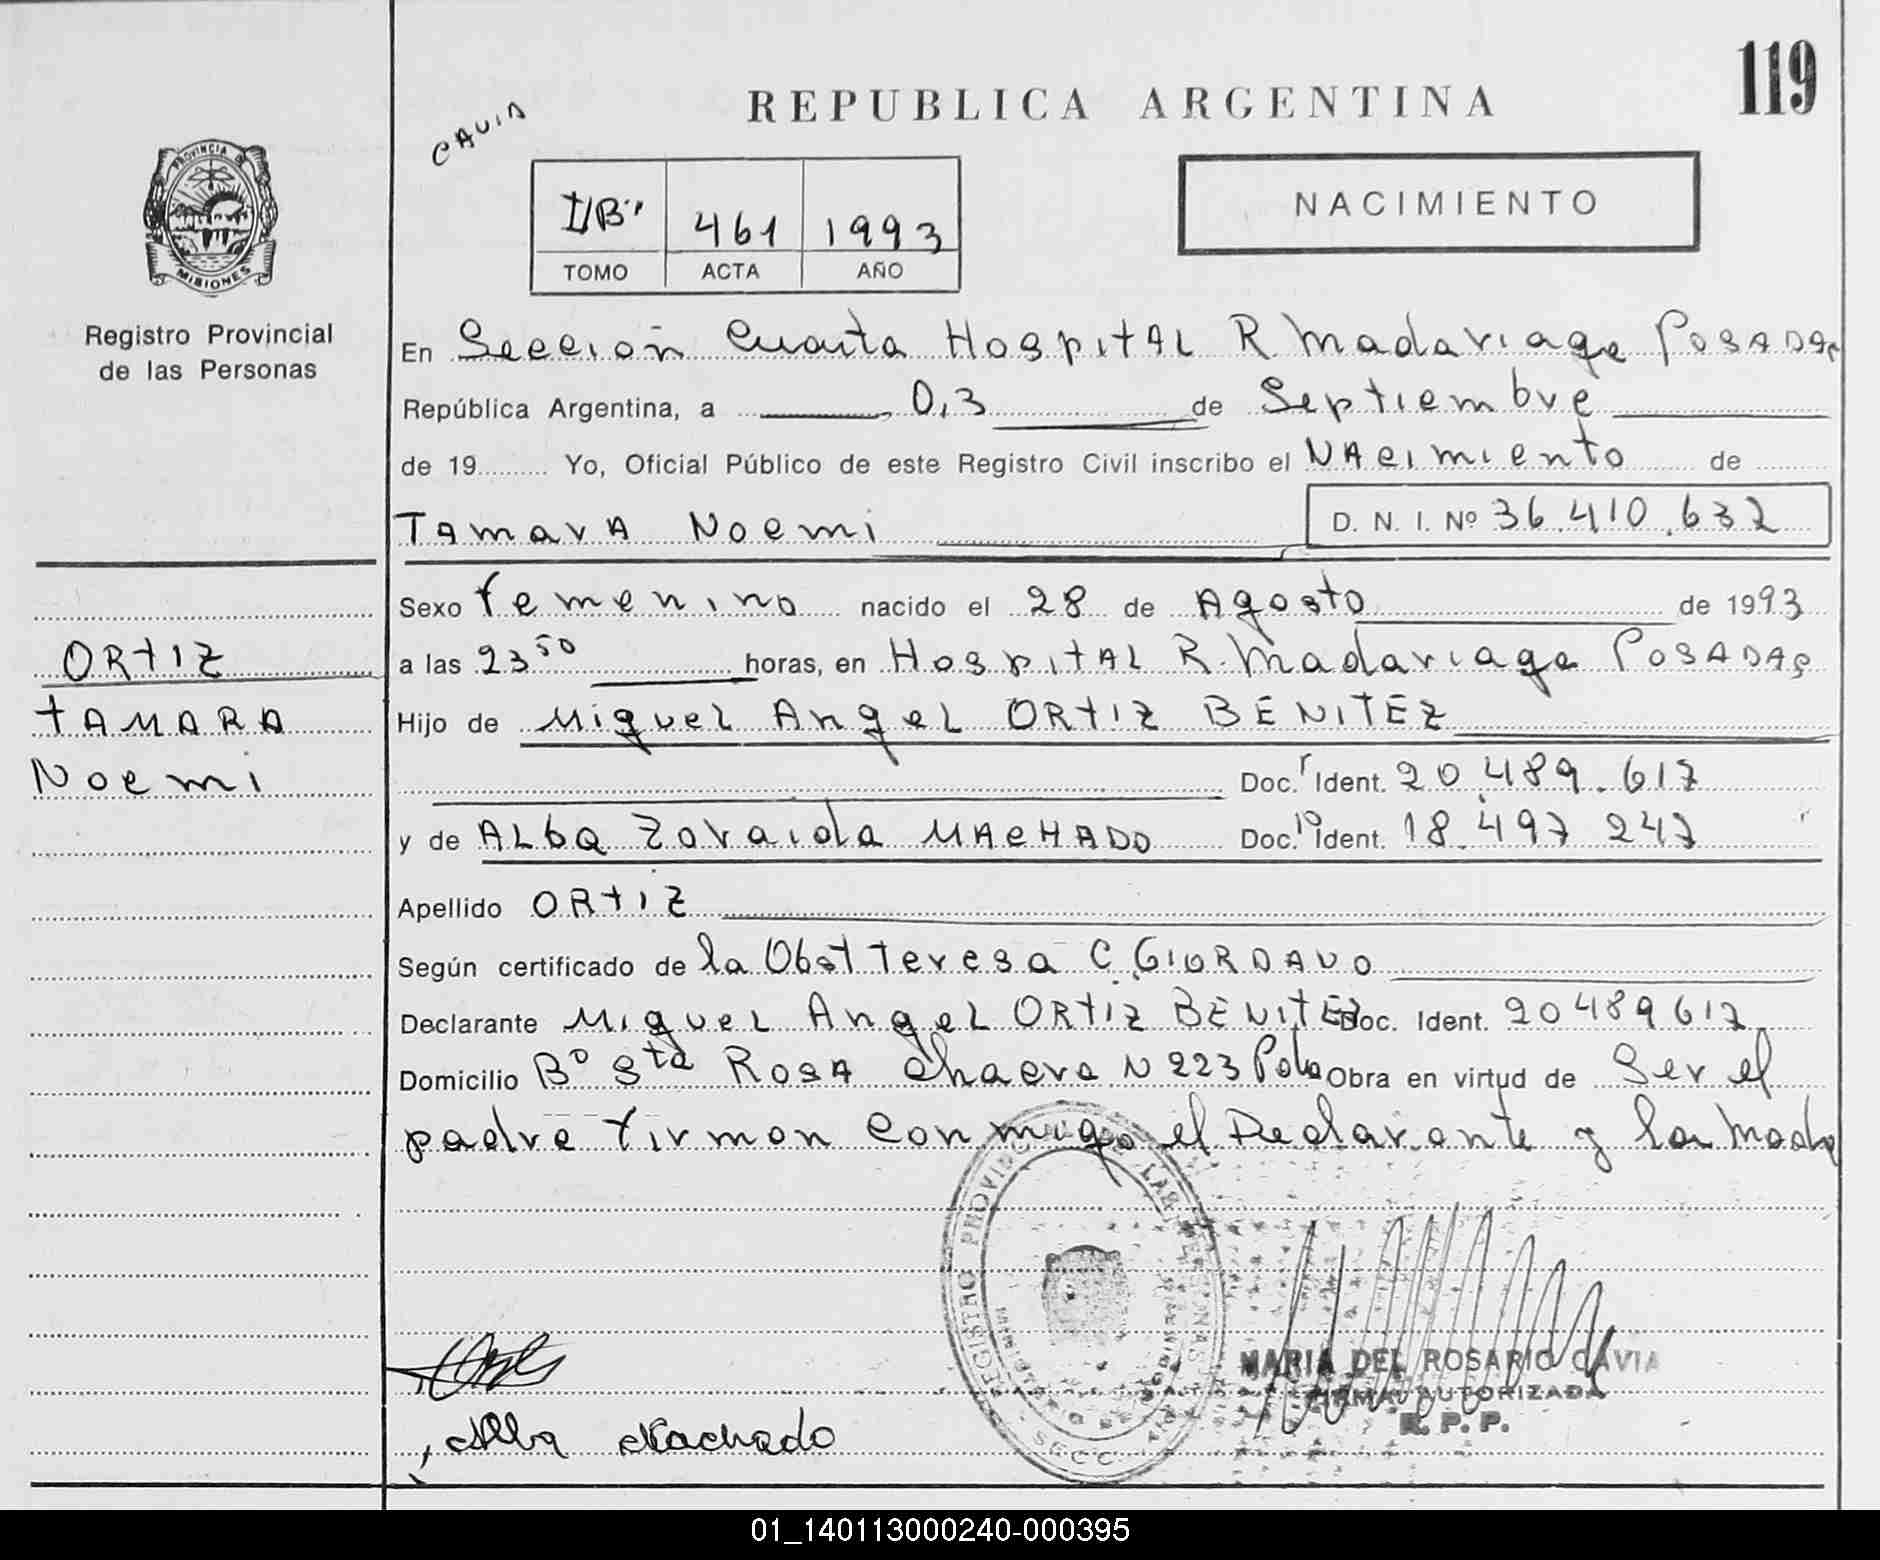 119
REPUBLICA ARGENTINA
CAVIA
PROVINCIA D
MISIONES
I/B" 461 1993
TOMO ACTA AÑO
NACIMIENTO
Registro Provincial
de las Personas
En Sección Cuarta Hospital R. Madariaga POSADAS
República Argentina, a 03 de Septiembre
de 19 Yo, Oficial Público de este Registro Civil inscribo el NAcimiento de
TAmarA Noemi D. N. I. Nº 36.410.632
Sexo Femenino nacido el 28 de Agosto de 1993
ORTIZ
a las 23 50 horas, en HospitAL R. Madariaga POSADAS
TAMARA
Hijo de Miguel Angel ORTIZ BENITEZ
Noemi
Doc. Ident. 20.489.617
y de ALba Zoraida MAcHADO Doc. Ident. 18.497 247
Apellido ORTIZ
Según certificado de la Obst Teresa C. GIORDANO
Declarante Miguel Angel ORTIZ BENITEZ Doc. Ident. 20489617
Domicilio Bº Sta ROSA chacra N 223 Pdas Obra en virtud de Ser el
padre firman conmigo el Declarante y la Madre
REGISTRO PROVINCIAL DE LAS PERSONAS
SECC.
MARIA DEL ROSARIO CAVIA
FIRMA AUTORIZADA
R. P. P.
Alba Machado
01_140113000240-000395